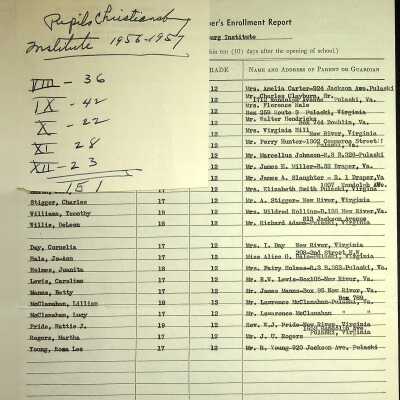 Pupils Christiansburg
Institute 1956-1957
VIII - 36
IX - 42
X - 22
XI 28
XII - 23
151
er's Enrollment Report
burg Institute
in ten (10) days after the opening of school.)
GRADE NAME AND ADDRESS OF PARENT OR GUARDIAN
12 Mrs. Amelia Carter-924 Jackson Ave. Pulaski
12 Mr. Charles Clayburn, Sr.
1712 Randolph Avenue Pulaski, Va.
12 Mrs. Florence Hale
Box 259 Route 3 Pulaski, Virginia
12 Mr. Walter Hendricks
Box 764 Dublin, Va.
12 Mrs. Virginia Hill
New River, Virginia
12 Mr. Perry Hunter-1302 Commerce Street
Pulaski, Va.
12 Mr. Marcellus Johnson-R.3 B.328-Pulaski
12 Mr. James E. Miller-B.52 Draper, Va.
12 Mr. James A. Slaughter - R. 1 Draper, Va
1007 Randolph Ave.
17 12 Mrs. Elizabeth Smith Pulaski, Virginia
Stigger, Charles 17 12 Mr. A. Stigger- New River, Virginia
Williams, Timothy 19 12 Mrs. Mildred Rollins-B.135 New River, Va.
813 Jackson Avenue
Willie, DeLeon 18 12 Mr. Richard Adams-Pulaski, Virginia
Day, Cornelia 17 12 Mrs. I. Day New River, Virginia
298-2nd Street N.W.
Hale, Jo-Ann 17 12 Miss Alice G. Hale-Pulaski, Virginia
Holmes, Juanita 18 12 Mrs. Fairy Holmes-R.3 B.363-Pulaski, Va.
Lewis, Caroline 17 12 Mr. E.V. Lewis-Box105-New River, Va.
Manns, Betty 17 12 Mr. James Manns-Box 95 New River, Va.
Box 789
McClanahan, Lillian 18 12 Mr. Lawrence McClanahan-Pulaski, Va.
McClanahan, Lucy 17 12 Mr. Lawrence McClanahan " "
Pride, Hattie J. 19 12 Rev. H.J. Pride-New River, Virginia
Rogers, Martha 17 12 Mr. J. U. Rogers Pulaski, Virginia
Young, Roma Lee 17 12 Mr. R. Young-920 Jackson Ave. Pulaski